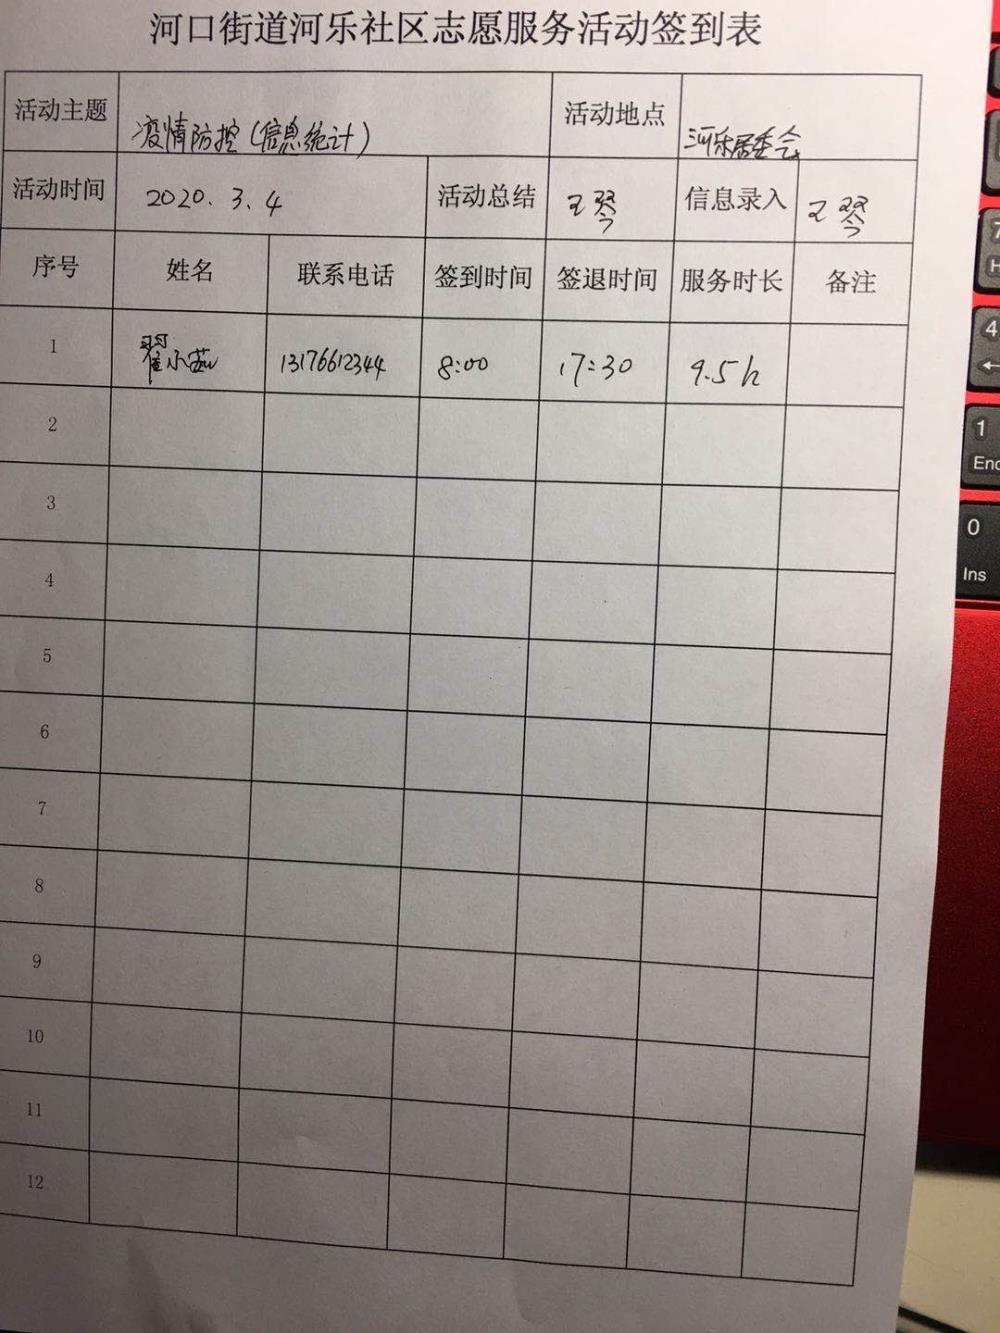 河口街道河乐社区志愿服务活动签到表
活动主题 疫情防控(信息统计) 活动地点 河乐居委会
活动时间 2020.3.4 活动总结 王琴 信息录入 王琴
序号 姓名 联系电话 签到时间 签退时间 服务时长 备注
1 翟小茹 13176612344 8:00 17:30 9.5h
2
3
4
5
6
7
8
9
10
11
12
7
H
4
←
1
End
0
Ins